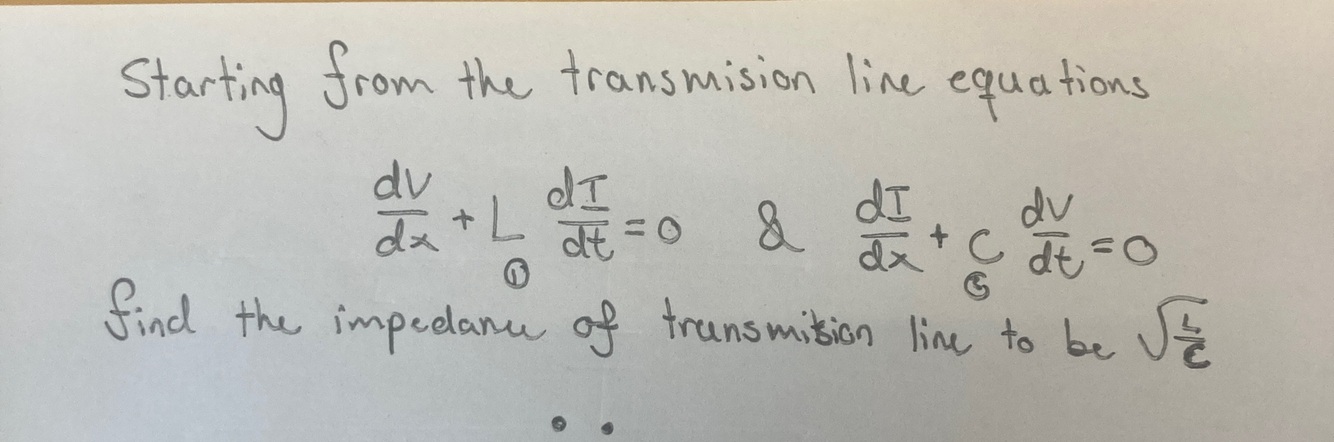 Starting from the transmision line equations
dV/dx + L dI/dt = 0 & dI/dx + C dV/dt = 0
①
find the impedance of transmission line to be √(L/C)